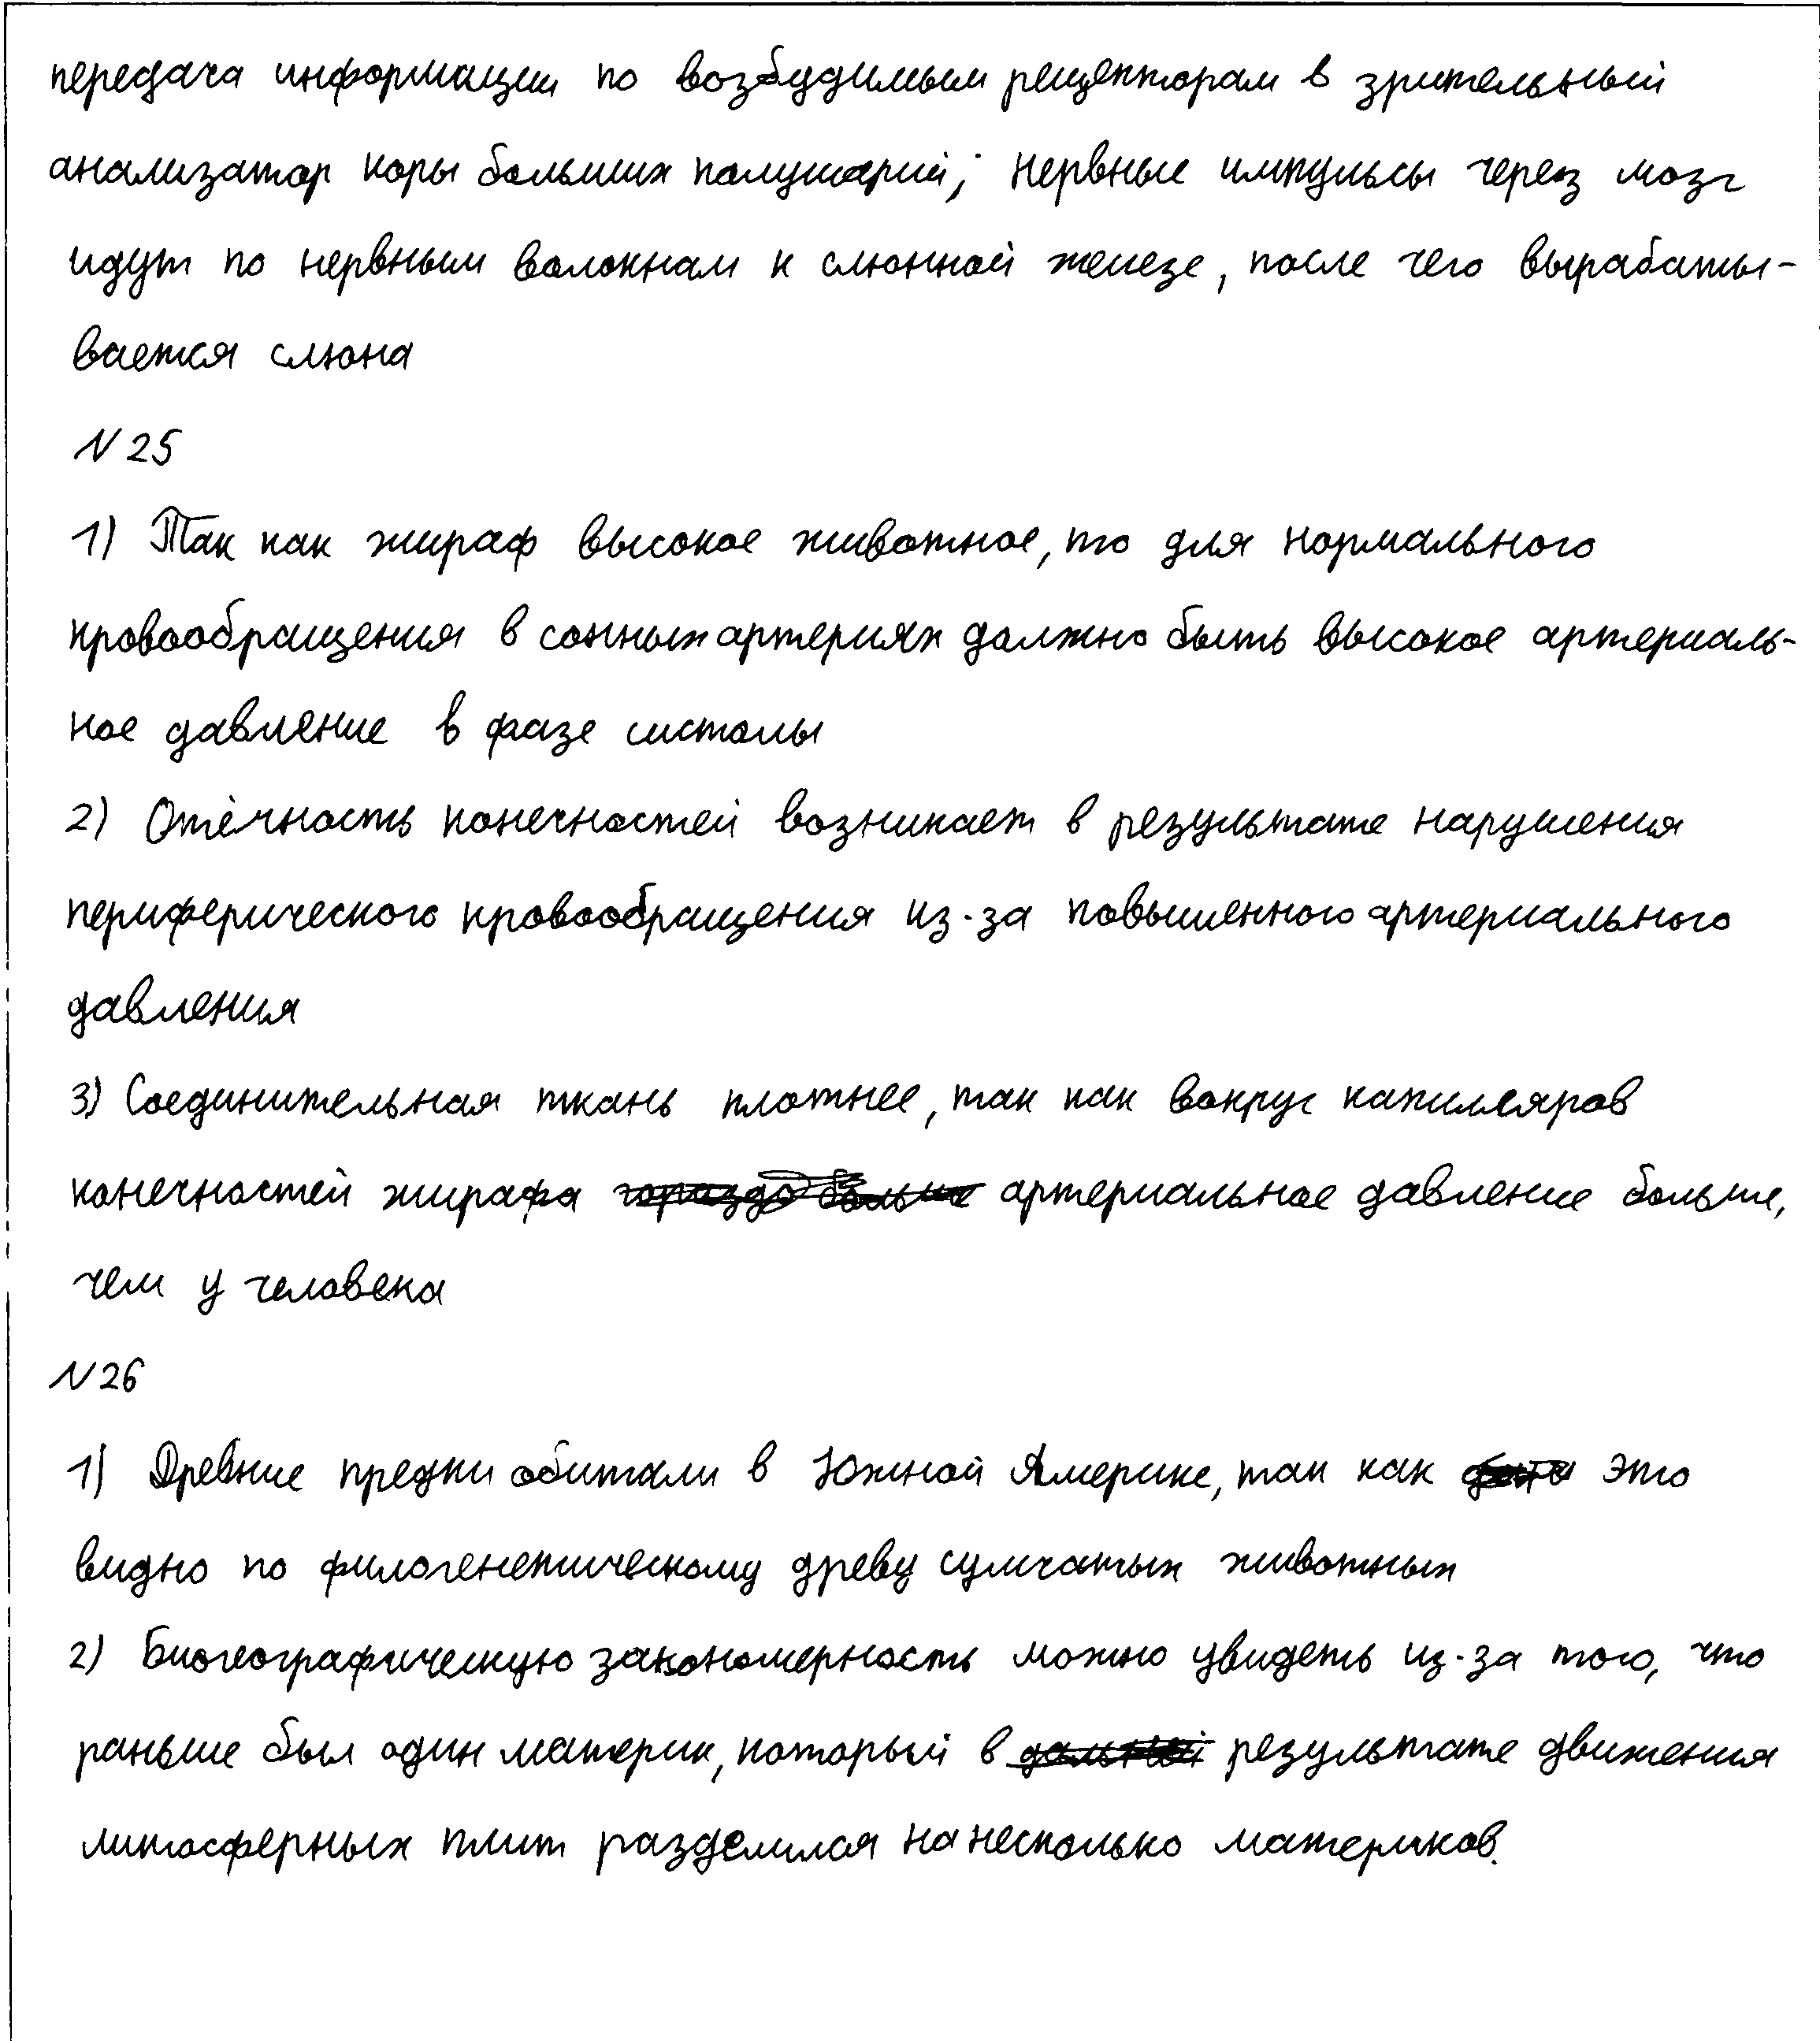 передача информации по возбудимым рецепторам в зрительный
анализатор коры больших полушарий; нервные импульсы через мозг
идут по нервным волокнам к слюнной железе, после чего вырабаты-
вается слюна
N 25
1) Так как жираф высокое животное, то для нормального
кровообращения в сонных артериях должно быть высокое артериаль-
ное давление в фазе систолы
2) Отёчность конечностей возникает в результате нарушения
периферического кровообращения из-за повышенного артериального
давления
3) Соединительная ткань плотнее, так как вокруг капилляров
конечностей жирафа гораздо больше артериальное давление больше,
чем у человека
N 26
1) Древние предки обитали в Южной Америке, так как это
видно по филогенетическому древу сумчатых животных
2) Биогеографическую закономерность можно увидеть из-за того, что
раньше был один материк, который в результате движения
литосферных плит разделился на несколько материков.